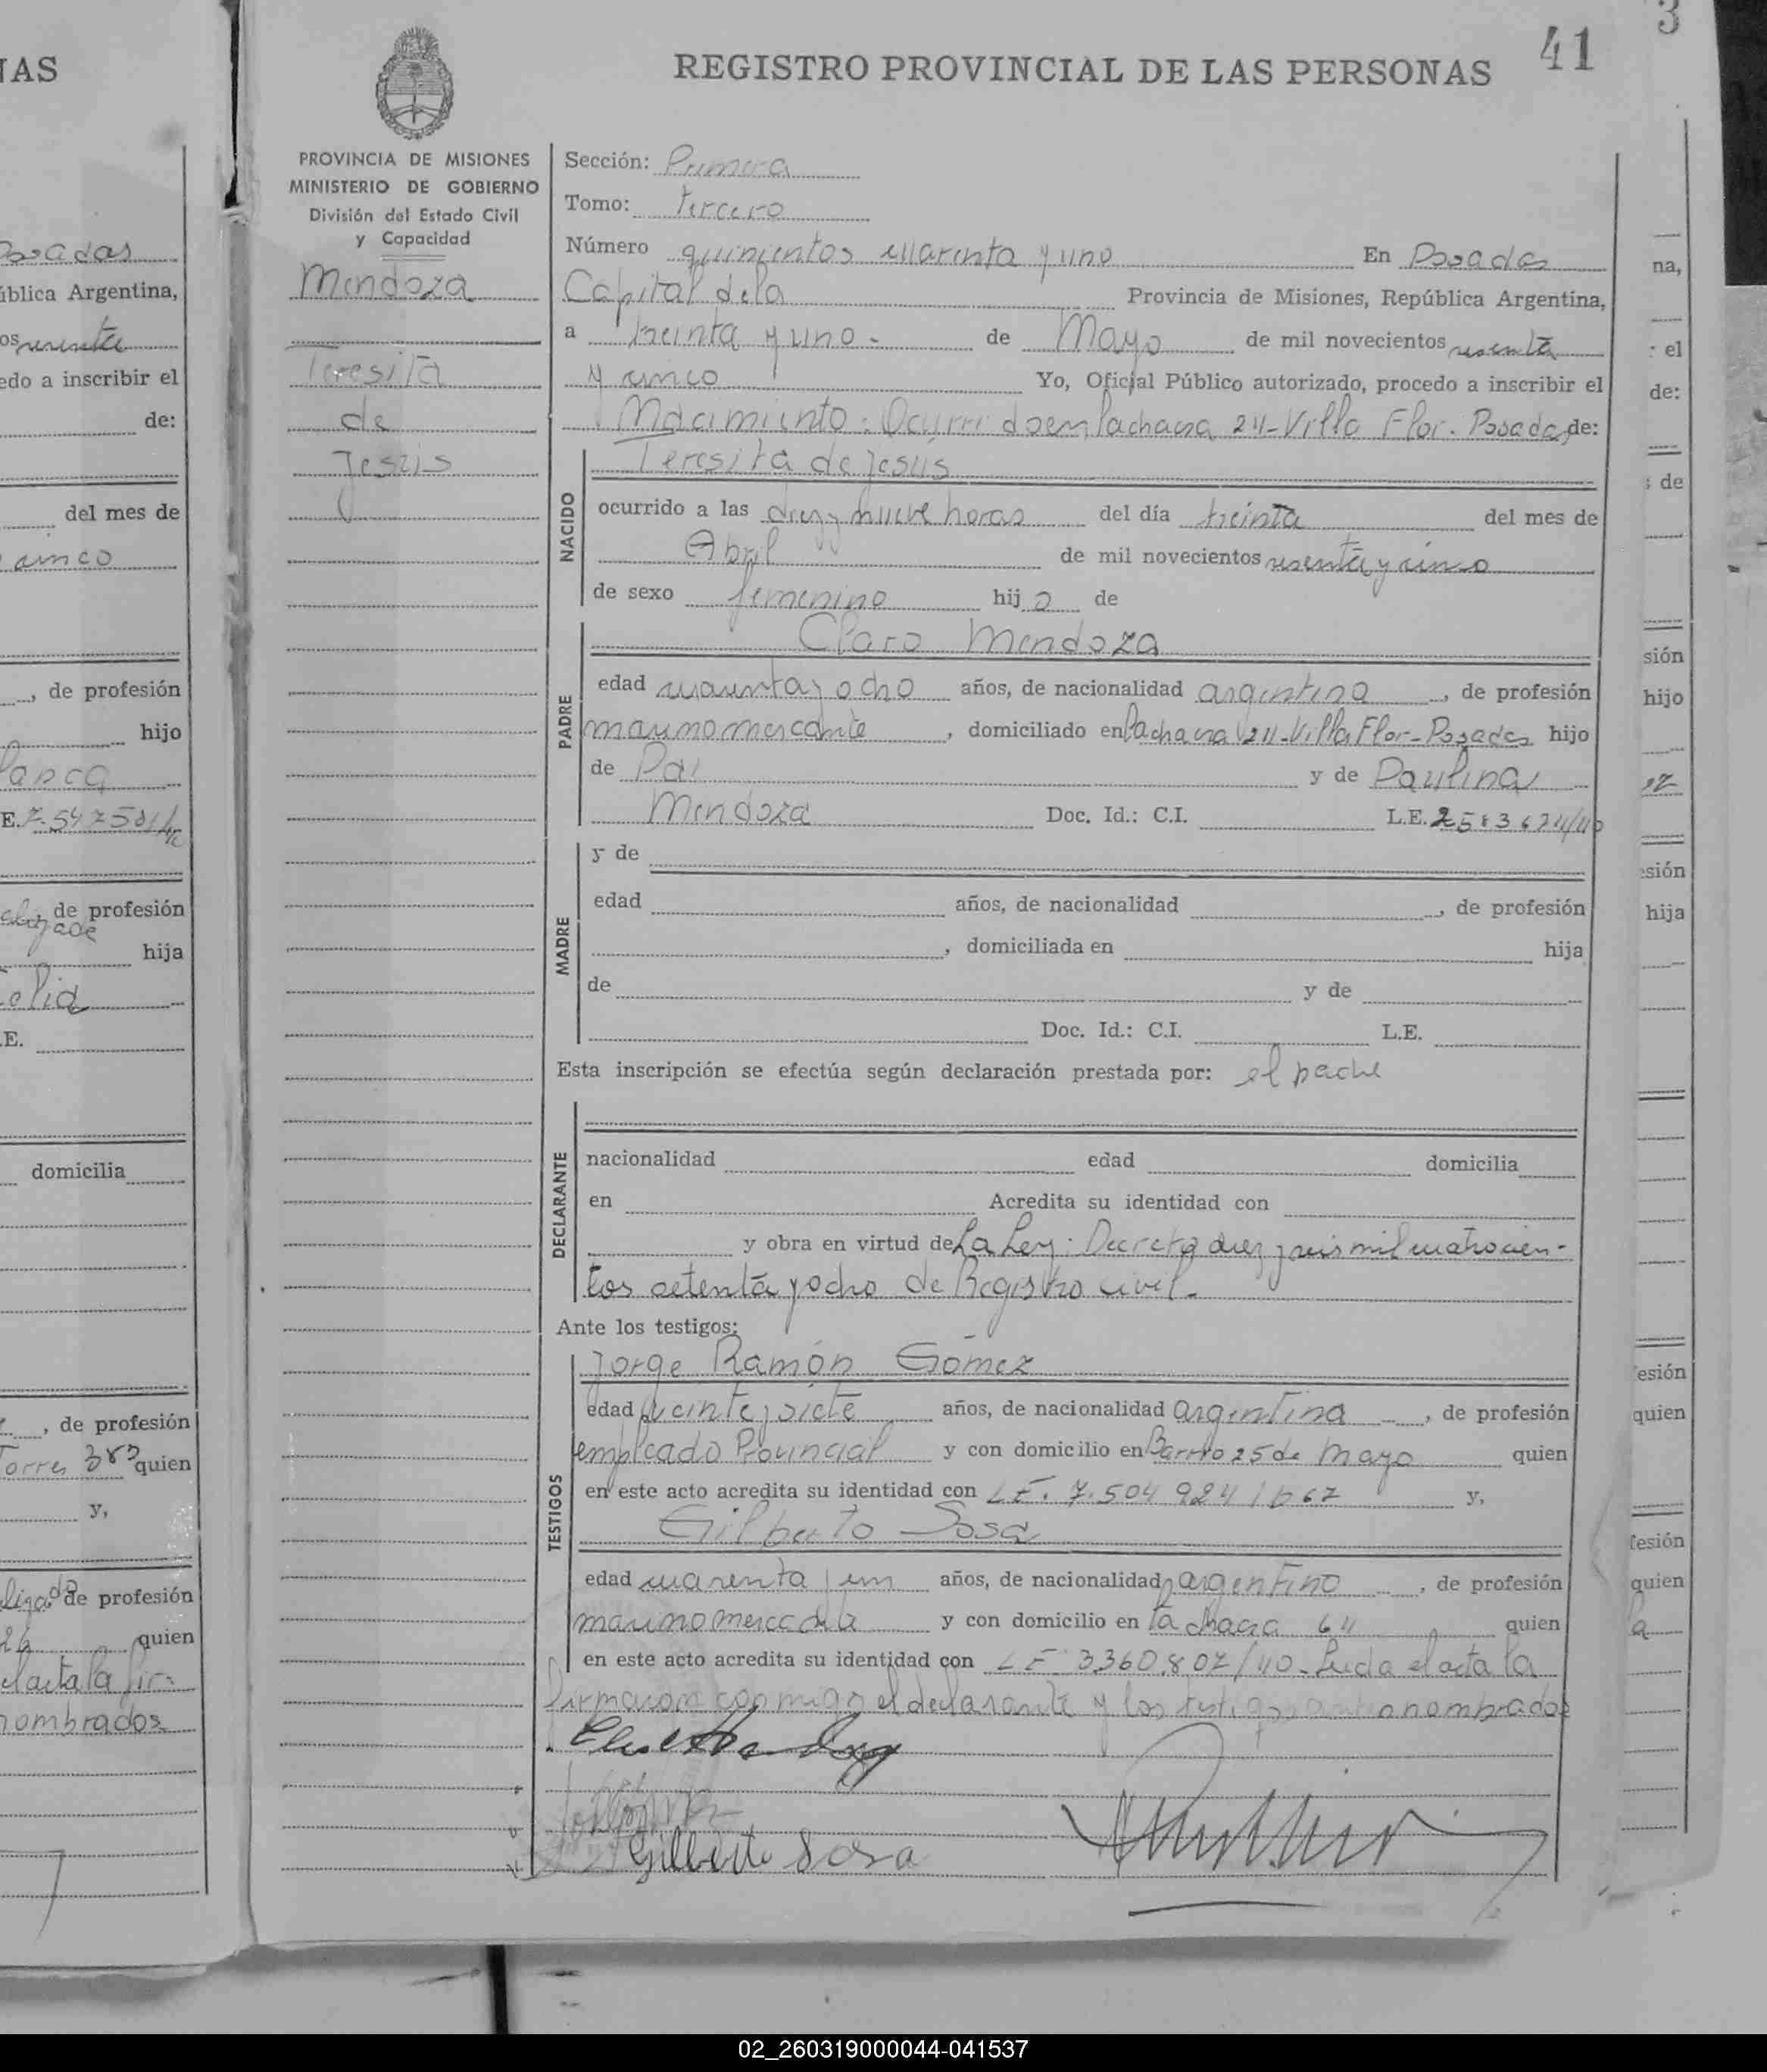 REGISTRO PROVINCIAL DE LAS PERSONAS
41
3
PROVINCIA DE MISIONES
MINISTERIO DE GOBIERNO
División del Estado Civil
y Capacidad
Mendoza
Teresita
de
Jesús
Sección: Primera
Tomo: tercero
Número quinientos cuarenta y uno En Posadas
Capital de la Provincia de Misiones, República Argentina,
a treinta y uno - de Mayo de mil novecientos sesenta
y cinco Yo, Oficial Público autorizado, procedo a inscribir el
Nacimiento. Ocurrido en la chacra 211-Villa Flor. Posadas de:
NACIDO
Teresita de Jesús
ocurrido a las diez y nueve horas del día treinta del mes de
Abril de mil novecientos sesenta y cinco
de sexo femenino hij o de
PADRE
Claro Mendoza
edad cuarenta y ocho años, de nacionalidad argentina, de profesión
marino mercante, domiciliado en la chacra 211-Villa Flor-Posadas hijo
de y de Paulina
Mendoza Doc. Id.: C.I. L.E.
MADRE
y de
edad años, de nacionalidad, de profesión
, domiciliada en hija
de y de
Doc. Id.: C.I. L.E.
Esta inscripción se efectúa según declaración prestada por: el padre
DECLARANTE
nacionalidad edad domicilia
en Acredita su identidad con
y obra en virtud de La Ley. Decreto diez y seis mil cuatrocien-
tos setenta y ocho de Registro civil.
Ante los testigos:
TESTIGOS
Jorge Ramón Gómez
edad veinte y siete años, de nacionalidad argentina -, de profesión
empleado Provincial y con domicilio en Barrio 25 de Mayo quien
en este acto acredita su identidad con L.E. 7.504 924 y,
Gilberto Sosa
edad cuarenta y un años, de nacionalidad argentino -, de profesión
marino mercante y con domicilio en la chacra 64 quien
en este acto acredita su identidad con LE 3360.807/40- Leida el acta la
firmaron conmigo el declarante y los testigos antes nombrados
Gilberto Sosa
02_260319000044-041537